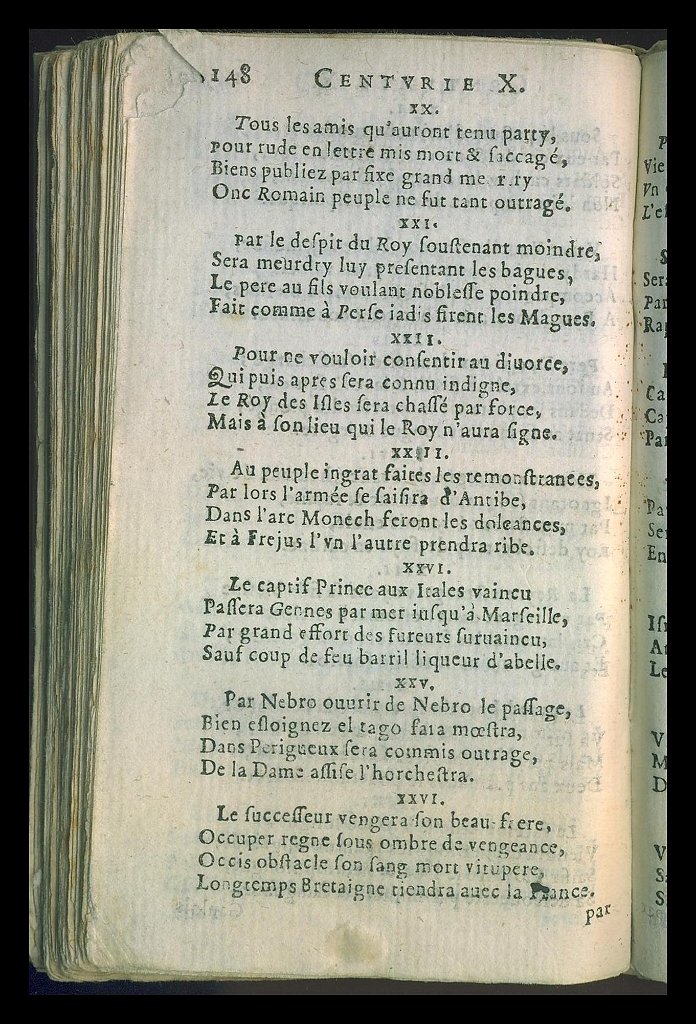 148 CENTVRIE X.
XX.
Tous les amis qu'auront tenu party,
pour rude en lettre mis mort & ſaccagé,
Biens publiez par fixe grand
Onc Romain peuple ne fut tant outragé.
XXI.
par le deſpit du Roy ſouſtenant moindre,
Sera meurdry luy preſentant les bagues,
Le pere au fils voulant nobleſſe poindre,
Fait comme à Perſe iadis firent les Magues.
XXII.
Pour ne vouloir conſentir au diuorce,
Qui puis apres ſera connu indigne,
Le Roy des Iſles ſera chaſſé par force,
Mais à ſon lieu qui le Roy n'aura ſigne.
XXIII.
Au peuple ingrat faites les remonſtrances,
Par lors l'armée ſe ſaiſira d'Antibe,
Dans l'arc Monech feront les doleances,
Et à Frejus l'vn l'autre prendra ribe.
XXVI.
Le captif Prince aux Itales vaincu
Paſſera Gennes par mer iuſqu'à Marſeille,
Par grand effort des fureurs ſuruaincu,
Sauf coup de feu barril liqueur d'abelle.
XXV.
Par Nebro ouurir de Nebro le paſſage,
Bien eſloignez el tago fara mœſtra,
Dans Perigueux ſera commis outrage,
De la Dame aſſiſe l'horcheſtra.
XXVI.
Le ſucceſſeur vengera ſon beau-frere,
Occuper regne ſous ombre de vengeance,
Occis obſtacle ſon ſang mort vitupere,
Longtemps Bretaigne tiendra auec la France.
par